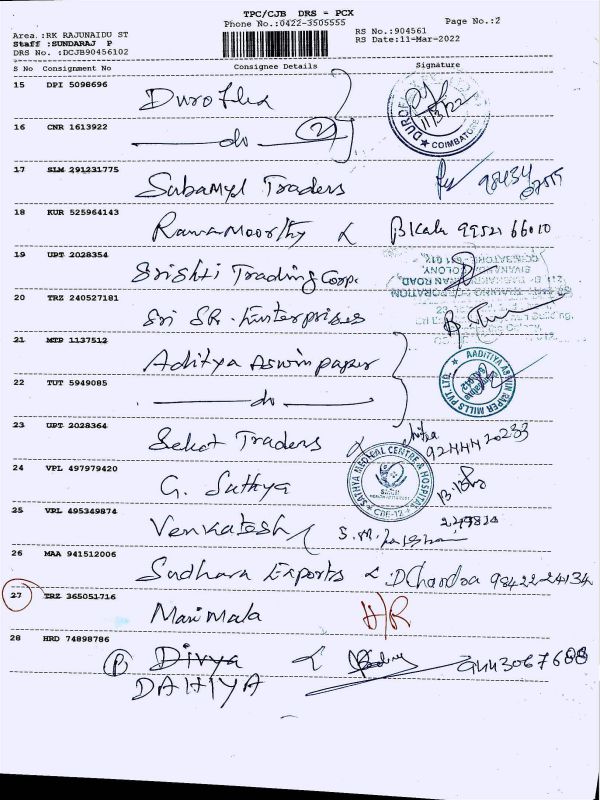 TPC/CJB DRS - PCX
Phone No.:0422-3505555
Page No.:2
Area.:RK RAJUNAIDU ST
Staff :SUNDARAJ P
DRS No. :DCJB90456102
RS No.:904561
RS Date:11-Mar-2022
S No Consignment No Consignee Details Signature
15 DPI 5098696 Duroflex
11/3/22
COIMBATORE
16 CNR 1613922 do 2
17 SLM 291231775 Subamyl Traders 98434
18 KUR 525964143 Ramamoorthy B Kala 99521 66010
19 UPT 2028354 Srishti Trading Corp.
20 TRZ 240527181 Sri SR. Enterprises
21 MTP 1137512 Aditya Aswin paper
AADITIYA ASWIN PAPER MILLS PVT. LTD.
22 TUT 5949085 do
23 UPT 2028364 Sekat Traders 92444 20233
24 VPL 497979420 G. Sathya
SATHYA MEDICAL CENTRE & HOSPITAL
CBE-12
25 VPL 495349874 Venkatesh
26 MAA 941512006 Sudhara Exports D Chandra 98422-24134
27 TRZ 365051716 Marimala H/R
28 HRD 74898786 P Divya 9443067688
DAHIYA